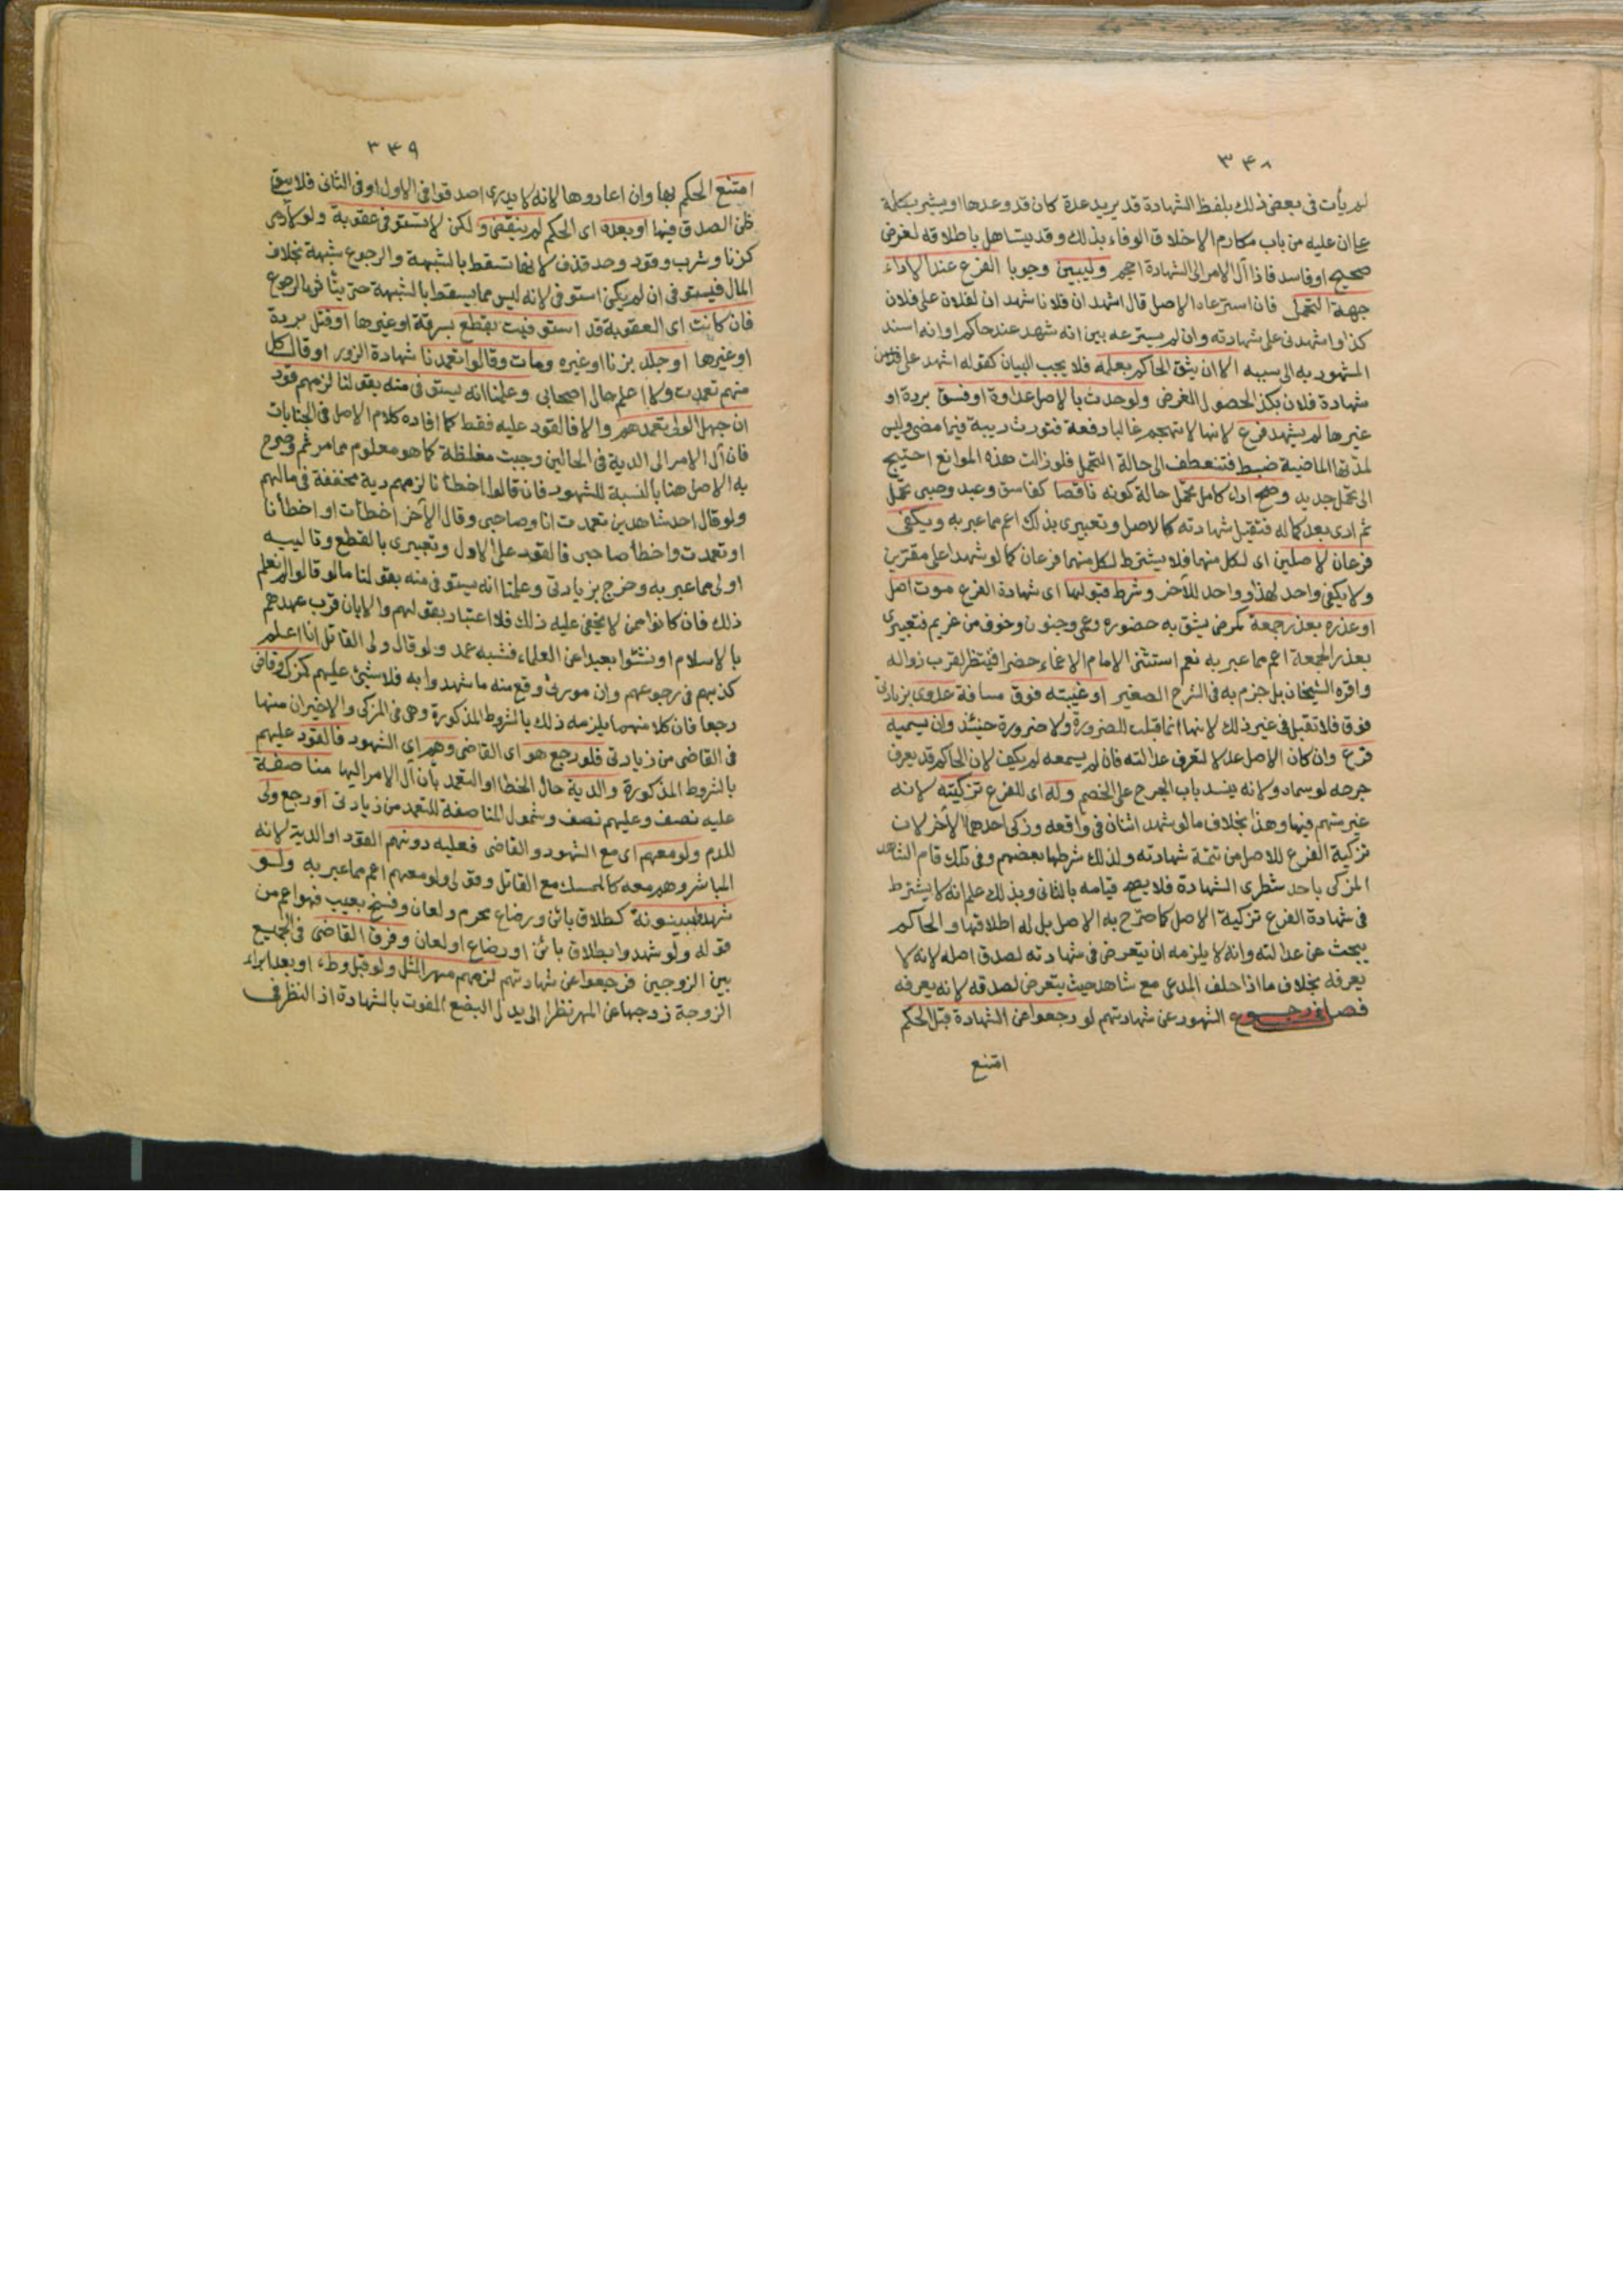 ٣۴٨
لم يأت في بعض ذلك بلفظ الشهادة قد يريد عدة كان قد وعدها او يشير بكلمة
على ان عليه من باب مكارم الاخلاق الوفاء بذلك وقد يتساهل باطلاقه لغرض
صحيح او فاسد فاذا آل الامر الى الشهادة احجم وليبين وجوبا الفرع عند الاداء
جهة التحمل فان استرعاه الاصل قال اشهد ان فلانا شهد ان لفلان على فلان
كذا واشهدني على شهادته وان لم يسترعه بين انه شهد عند حاكم او انه اسند
المشهود به الى سببه الا ان يثق الحاكم بعلمه فلا يجب البيان كقوله اشهد على
شهادة فلان بكذا لحصول الغرض ولو حدث بالاصل عداوة او فسق بردة او
غيرها لم يشهد فرع لانها لا تهجم غالبا دفعة فتورث ريبة فيما مضى وليس
لمدتها الماضية ضبط فتنعطف الى حالة التحمل فلو زالت هذه الموانع احتيج
الى تحمل جديد وصح اداء كامل تحمل حالة كونه ناقصا كفاسق وعبد وصبي تحمل
ثم ادى بعد كماله فتقبل شهادته كالاصل وتعبيري بذلك اعم مما عبر به ويكفي
فرعان لاصلين اي لكل منهما فلا يشترط لكل منهما فرعان كما لو شهدا على مقرين
ولا يكفي واحد لهذا وواحد للآخر وشرط قبولها اي شهادة الفرع موت اصل
او عذره بعذر جمعة كمرض يشق به حضوره وعمى وجنون وخوف من غريم فتعبيري
بعذر الجمعة اعم مما عبر به نعم استثنى الامام الاغماء حضرا فينتظر لقرب زواله
واقره الشيخان بل جزم به في الشرح الصغير او غيبته فوق مسافة عدوى بزيادتي
فوق فلا تقبل في غير ذلك لانها انما قبلت للضرورة ولا ضرورة حينئذ وان يسميه
فرع وان كان الاصل عدلا لتعرف عدالته فان لم يسمعه لم يكف لان الحاكم قد يعرف
جرحه لو سماه ولانه ينسد باب الجرح على الخصم وله اي للفرع تزكيته لانه
غير متهم فيها وهذا بخلاف ما لو شهد اثنان في واقعه وزكى احدهما الآخر لان
تزكية الفرع للاصل من تتمة شهادته ولذلك شرطها بعضهم وفي تلك قام الشاهد
المزكى باحد شطري الشهادة فلا يصح قيامه بالثاني وبذلك علم انه لا يشترط
في شهادة الفرع تزكية الاصل كما صرح به الاصل بل له اطلاقها والحاكم
يبحث عن عدالته وانه لا يلزمه ان يتعرض في شهادته لصدق اصله لانه لا
يعرفه بخلاف ما اذا حلف المدعي مع شاهد حيث يتعرض لصدقه لانه يعرفه
فصل في رجوع الشهود عن شهادتهم لو رجعوا عن الشهادة قبل الحكم
امتنع
٣۴٩
امتنع الحكم بها وان اعادوها لانه لا يدرى اصدقوا في الاول او في الثاني فلا يبقى
ظن الصدق فيها او بعده اي الحكم لم ينقض ولكن لا تستوفى عقوبة ولو لآدمي
كزنا وشرب وقود وحد قذف لانها تسقط بالشبهة والرجوع شبهة بخلاف
المال فيستوفى ان لم يكن استوفي لانه ليس مما يسقط بالشبهة حتى يتأثر بالرجوع
فان كانت اي العقوبة قد استوفيت بقطع بسرقة او غيرها او قتل بردة
او غيرها او جلد بزنا او غيره ومات وقالوا تعمدنا شهادة الزور او قال كل
منهم تعمدت ولا اعلم حال اصحابي وعلمنا انه يستوفى منه بقولنا لزمهم قود
ان جهل الولي تعمدهم والا فالقود عليه فقط كما افاده كلام الاصل في الجنايات
فان آل الامر الى الدية في الحالين وجبت مغلظة كما هو معلوم مما مر ثم وصرح
به الاصل هنا بالنسبة للشهود فان قالوا اخطأنا لزمهم دية مخففة في مالهم
ولو قال احد شاهدين تعمدت انا وصاحبي وقال الآخر اخطأت او اخطأنا
او تعمدت واخطأ صاحبي فالقود على الاول وتعبيري بالقطع وتاليه
اولى مما عبر به وخرج بزيادتي وعلمنا انه يستوفى منه بقولنا ما لو قالوا لم نعلم
ذلك فان كانوا ممن لا يخفى عليه ذلك فلا اعتبار بقولهم والا بان قرب عهدهم
بالاسلام او نشئوا بعيدا عن العلماء فشبه عمد ولو قال ولي القاتل انا اعلم
كذبهم في رجوعهم وان مورثي وقع منه ما شهدوا به فلا شيئ عليهم كمزك وقاضي
رجعا فان كلا منهما يلزمه ذلك بالشروط المذكورة وهي في المزكي والاخيران منها
في القاضي من زيادتي فلو رجع هو اي القاضي وهم اي الشهود فالقود عليهم
بالشروط المذكورة والدية حال الخطا او التعمد بأن آل الامر اليها مناصفة
عليه نصف وعليهم نصف وشمول المناصفة للتعمد من زيادتي او رجع ولي
للدم ولو معهم اي مع الشهود والقاضي فعليه دونهم القود او الدية لانه
المباشر وهم معه كالممسك مع القاتل وقولي ولو معهم اعم مما عبر به ولو
شهدوا ببينونة كطلاق بائن ورضاع محرم ولعان وفسخ بعيب فهو اعم من
قوله ولو شهدوا بطلاق بائن او رضاع او لعان وفرق القاضي في الجميع
بين الزوجين فرجعوا عن شهادتهم لزمهم مهر المثل ولو قبل وطء او بعد ابراء
الزوجة زوجها عن المهر نظرا الى بدل البضع المفوت بالشهادة اذ النظر في